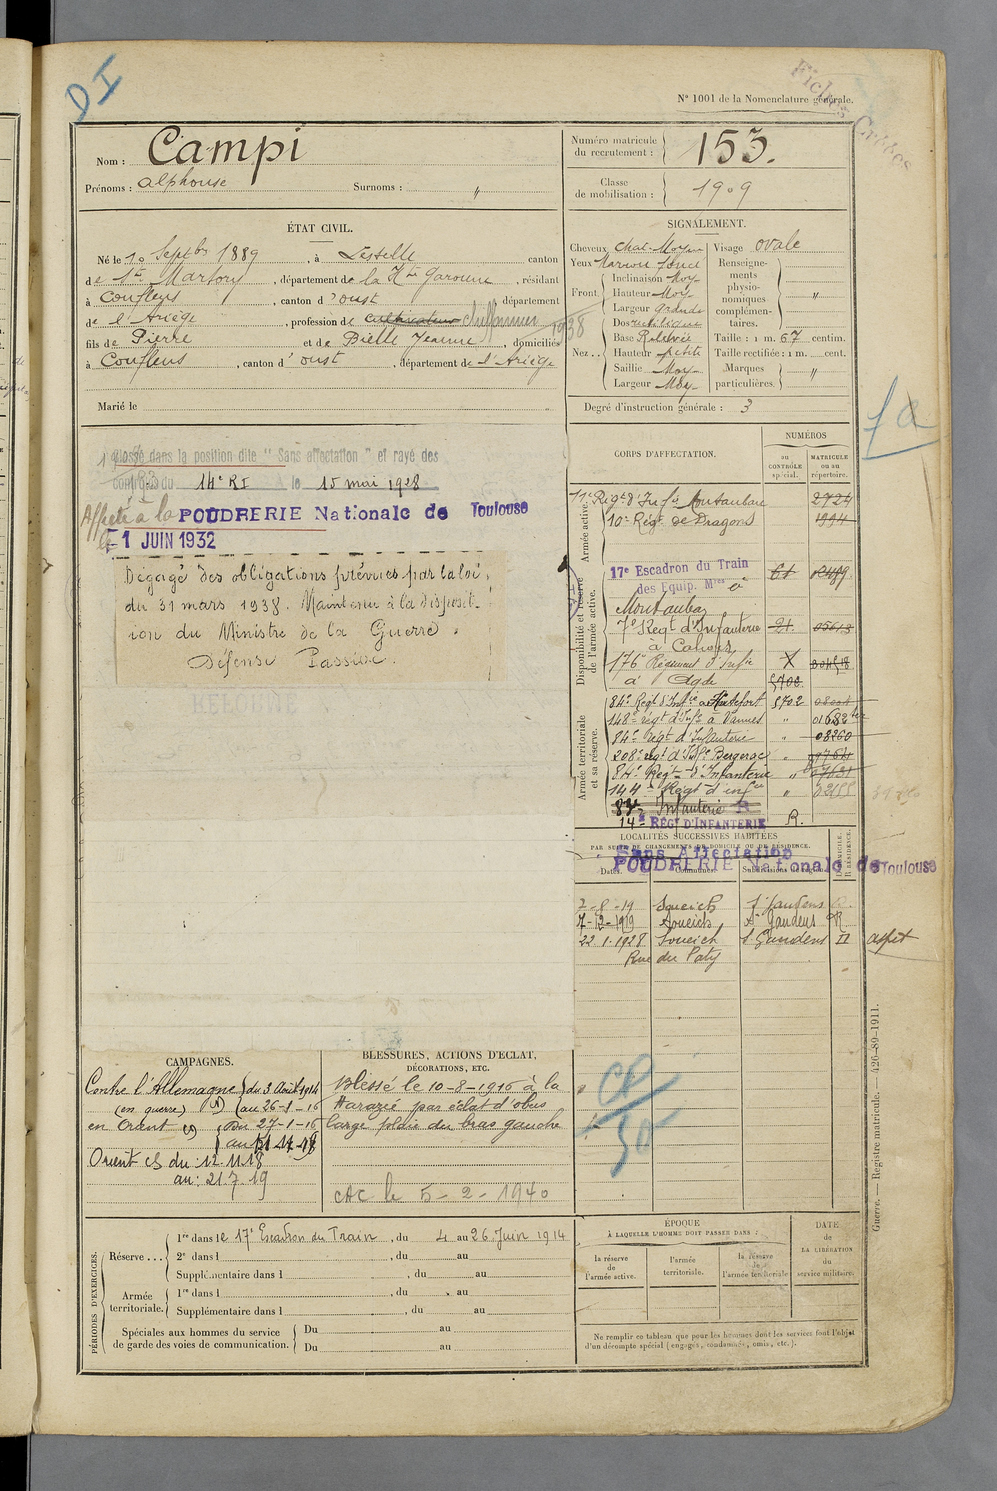 DI
Fiches Créées
N° 1001 de la Nomenclature générale.
Nom : Campi
Prénoms : alphonse Surnoms : "
Numéro matricule du recrutement : 153.
Classe de mobilisation : 1909
ÉTAT CIVIL.
Né le 10 Septbre 1889, à Lestelle canton
de St Martory, département de la Hte Garonne, résidant
à Couflens, canton d'oust, département
de l'Ariège, profession de cultivateur
1938
fils de Pierre et de Bielle Jeanne, domiciliés
à Couflens, canton d'oust, département de l'Ariège
Marié le
SIGNALEMENT.
Cheveux chat. Moyen
Yeux Marron foncé
Front Inclinaison Moy-
Hauteur Moy-
Largeur grande
Nez.. Dos rectiligne
Base Relevée
Hauteur petite
Saillie Moy-
Largeur Moy-
Visage ovale
Renseignements physionomiques complémentaires. "
Taille : 1 m. 67 centim.
Taille rectifiée : 1 m. cent.
Marques particulières. "
Degré d'instruction générale : 3
classé dans la position dite " Sans affectation " et rayé des
contrôles du 14e RI le 15 mai 1928
Affecté à la POUDRERIE Nationale de Toulouse
le -1 JUIN 1932
Dégagé des obligations prévues par la loi
du 31 mars 1938. Maintenu à la disposit-
ion du Ministre de la Guerre.
Défense Passive.
CORPS D'AFFECTATION.
NUMÉROS
au CONTRÔLE spécial.
MATRICULE ou au répertoire.
Armée active.
11e Régt d'Infie Montauban 2724
10e Régt de Dragons 1994
Disponibilité et réserve de l'armée active.
17e Escadron du Train
des Equip. Mres à
Montauban
7e Régt d'Infanterie 21.
à Cahors
176e Régiment d'Infie
à Agde 5702
Armée territoriale et sa réserve.
84e Régt d'Infie 5702
148e régt d'Infie à Vannes "
84e régt d'Infanterie " 08260
208e régt d'Infie Bergerac "
84e Régt d'Infanterie "
144e Régt d'infie "
83e Infanterie R
14e RÉGt D'INFANTERIE R.
Sans Affectation
POUDRERIE Nationale de Toulouse
LOCALITÉS SUCCESSIVES HABITÉES
PAR SUITE DE CHANGEMENTS DE DOMICILE OU DE RÉSIDENCE.
Dates. Communes. Subdivisions de région. D. DOMICILE. R. RÉSIDENCE.
7-8-19 Soueich St Gaudens R.
7-12-1919 Soueich St Gaudens R
22.1.1928 Soueich St Gaudens D aspet
Rue du Paty
CAMPAGNES.
Contre l'Allemagne du 3 Août 1914
(en guerre) au 26-1-16
en Orient Du 27-1-16
au 11-11-18
Orient CS du : 12.11.18
au : 21.7.19
BLESSURES, ACTIONS D'ÉCLAT,
DÉCORATIONS, ETC.
Blessé le 10-8-1916 à la
Harazié par éclat d'obus
large plaie du bras gauche
CAC le 5-2-1940
PÉRIODES D'EXERCICES.
Réserve... 1re dans le 17e Escadron du Train, du 4 au 26 Juin 1914
2e dans l , du au
Supplémentaire dans l , du au
Armée territoriale. 1re dans l , du au
Supplémentaire dans l , du au
Spéciales aux hommes du service
de garde des voies de communication. Du au
Du au
ÉPOQUE
À LAQUELLE L'HOMME DOIT PASSER DANS :
la réserve de l'armée active.
l'armée territoriale.
la réserve de l'armée territoriale
DATE DE LA LIBÉRATION du service militaire.
Ne remplir ce tableau que pour les hommes dont les services font l'objet
d'un décompte spécial (engagés, condamnés, omis, etc.).
Guerre. — Registre matricule. — 426-89-1911.